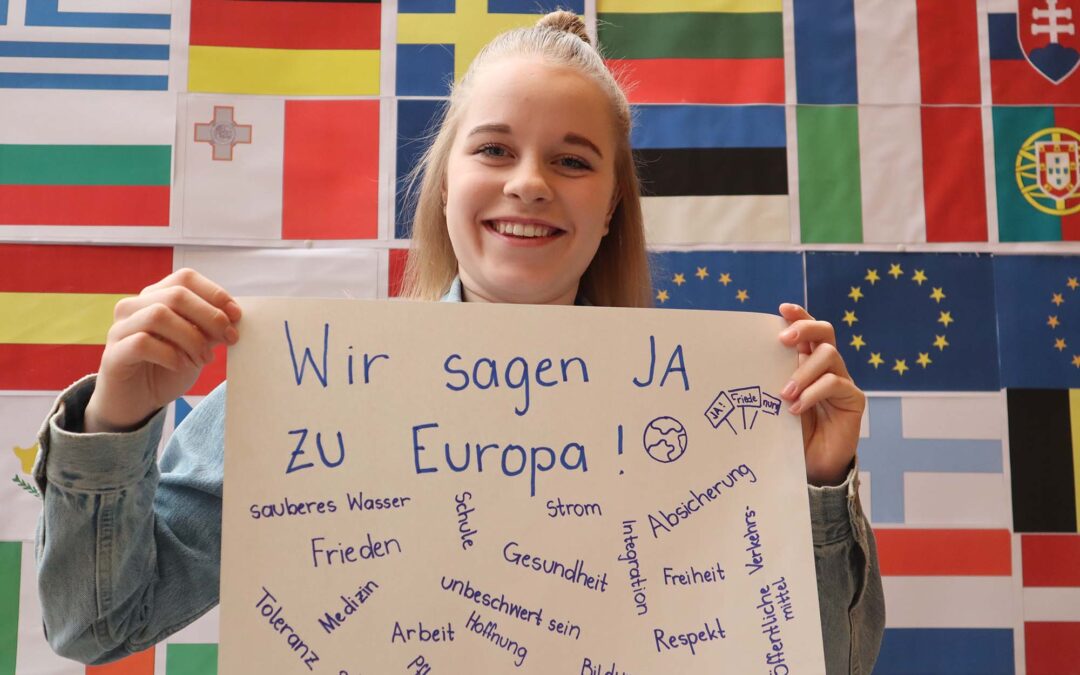 Wir sagen JA
zu Europa!
JA! Friede
sauberes Wasser
Schule
Strom
Absicherung
Frieden
Gesundheit
Integration
Freiheit
Verkehrs-
mittel
Öffentliche
Toleranz
Medizin
unbeschwert sein
Arbeit
Hoffnung
Respekt